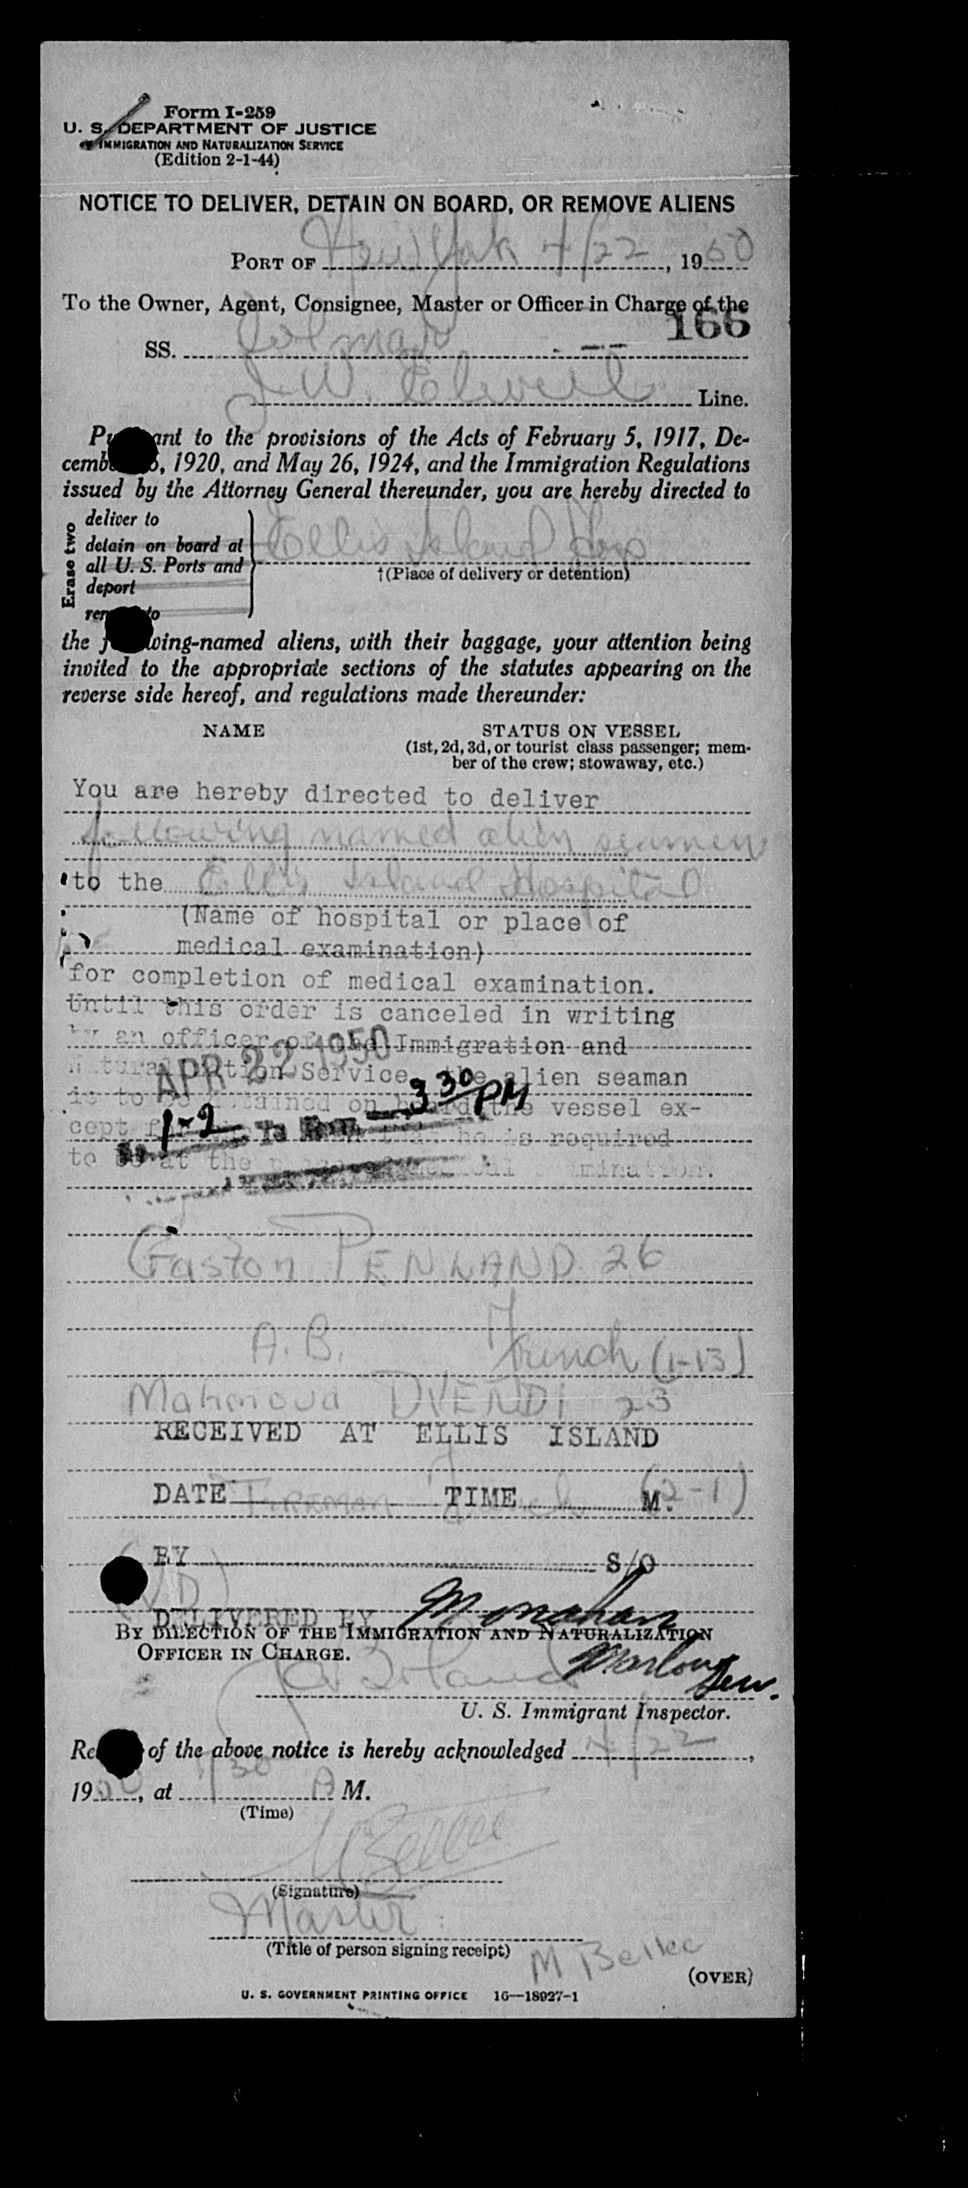 Form I-259
U. S. DEPARTMENT OF JUSTICE
IMMIGRATION AND NATURALIZATION SERVICE
(Edition 2-1-44)
NOTICE TO DELIVER, DETAIN ON BOARD, OR REMOVE ALIENS
PORT OF New York 4/22, 1950
To the Owner, Agent, Consignee, Master or Officer in Charge of the
166
SS. Colmar
J. W. Elwell Line.
Pu ant to the provisions of the Acts of February 5, 1917, De-
cemb 5, 1920, and May 26, 1924, and the Immigration Regulations
issued by the Attorney General thereunder, you are hereby directed to
Erase two
deliver to
detain on board at
all U. S. Ports and
deport
rem to
Ellis Island Hosp
†(Place of delivery or detention)
the f owing-named aliens, with their baggage, your attention being
invited to the appropriate sections of the statutes appearing on the
reverse side hereof, and regulations made thereunder:
NAME STATUS ON VESSEL
(1st, 2d, 3d, or tourist class passenger; mem-
ber of the crew; stowaway, etc.)
You are hereby directed to deliver
following named alien seamen
to the Ellis Island Hospital
(Name of hospital or place of
medical examination)
for completion of medical examination.
Until this order is canceled in writing
by an officer of Immigration and
Naturalization Service, the alien seaman
APR 22 1950
is to be detained on board the vessel ex-
3 30 PM
cept he is required
1-2
to be at the place of medical examination.
Gaston PENLAND 26
A.B. French (1-13)
Mahmoud DVENDI 23
RECEIVED AT ELLIS ISLAND
DATE Fireman TIME French M. (2-1)
BY S/O
(VD)
DELIVERED BY Monahan
BY DIRECTION OF THE IMMIGRATION AND NATURALIZATION
OFFICER IN CHARGE.
U. S. Immigrant Inspector.
Re of the above notice is hereby acknowledged 4/22,
1950, at 30 A M.
(Time)
M Bellec
(Signature)
Master
(Title of person signing receipt)
M Bellec
(OVER)
U. S. GOVERNMENT PRINTING OFFICE 16—18927-1